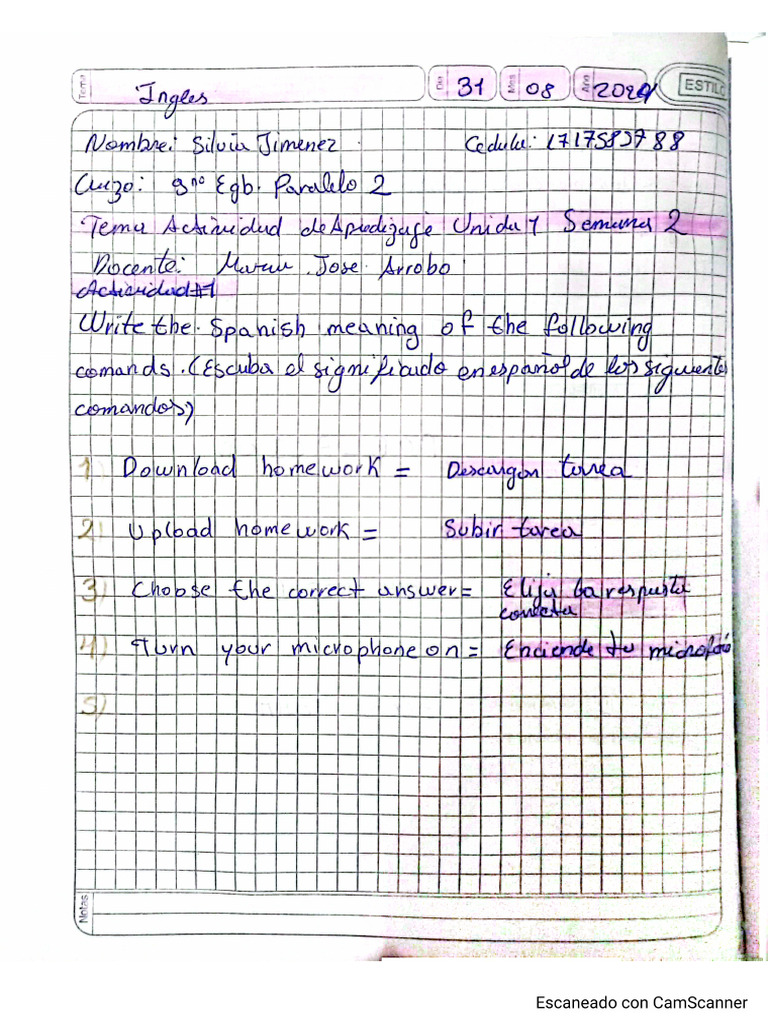 Tema Ingles Dia 31 Mes 08 Año 2024 ESTILO
Nombre: Silvia Jimenez Cedula:
Curzo: 9no Egb. Paralelo 2
Tema Actividad de Apredizaje Unida 1 Semana 2
Docente: Maria Jose Arrobo
Actividad #1
Write the Spanish meaning of the following
comands. (Escuba el significado en español de los siguientes
comandos)
1) Download homework = Descargan tarea
2) Upload homework = Subir tarea
3) Choose the correct answer = Elija la respusta
correta
4) Turn your microphone on = Enciende tu
5)
Notas
Escaneado con CamScanner